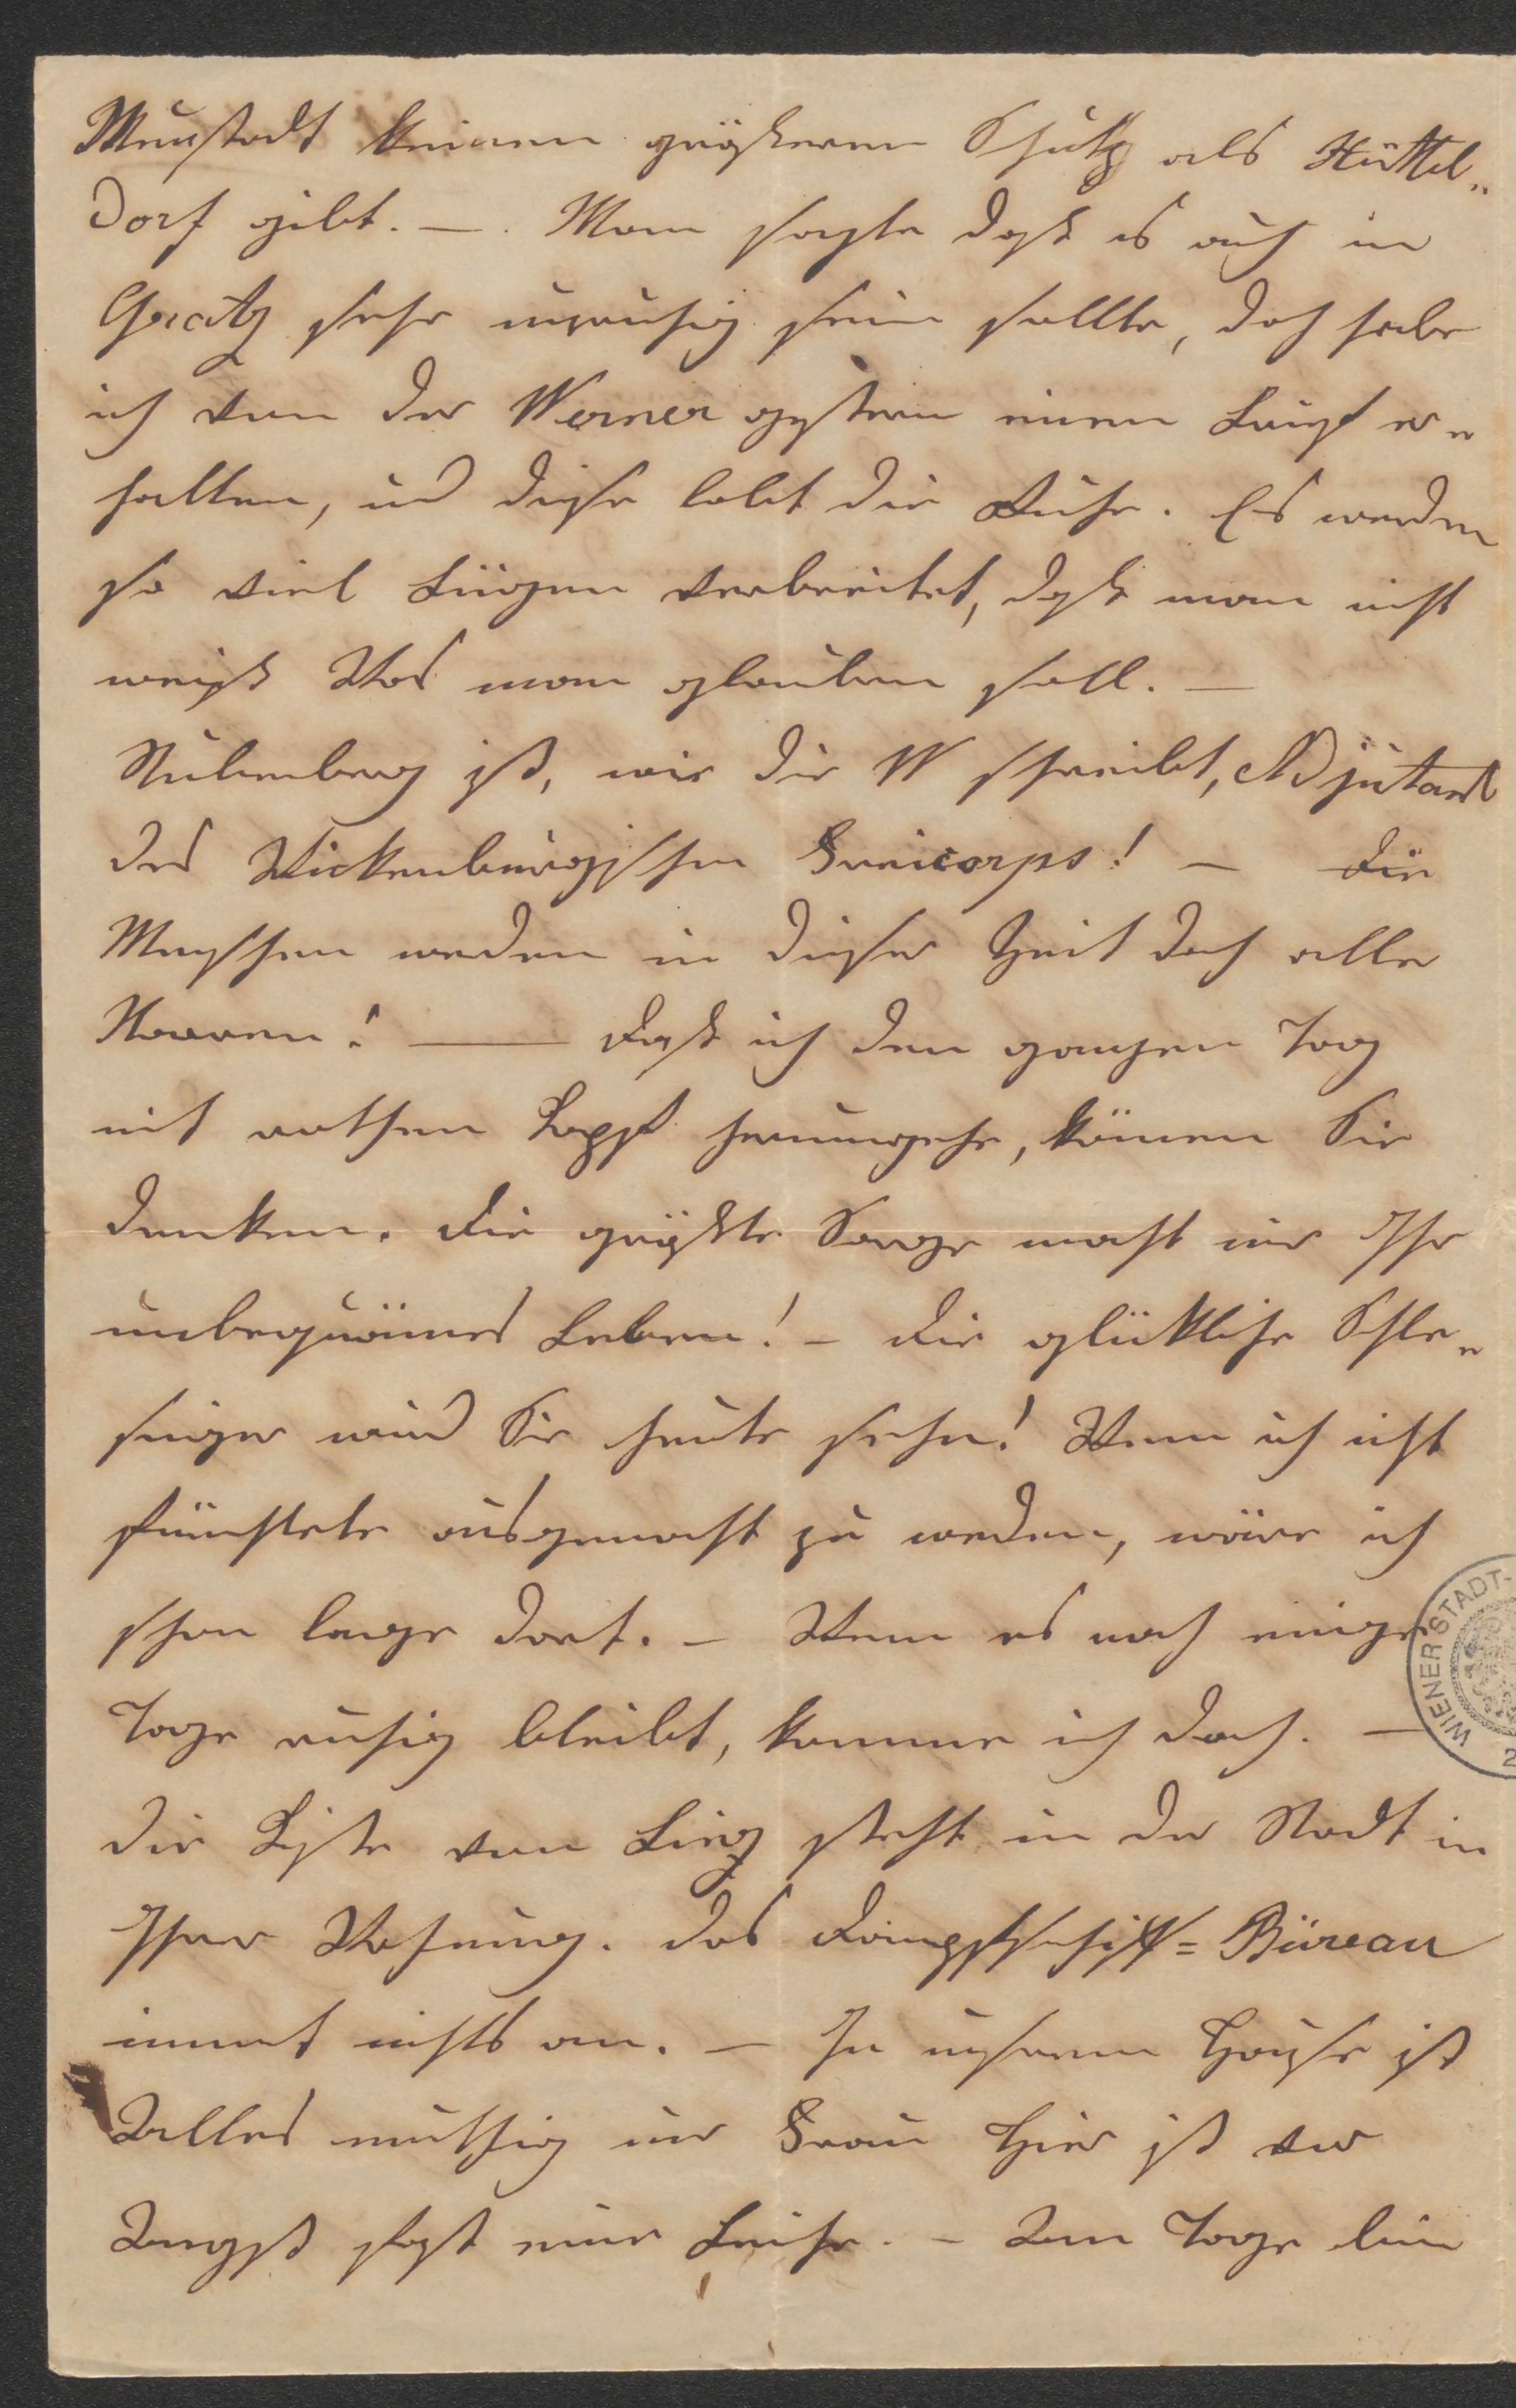 Neustadt keinen größeren Schutz als Hüttel„
dorf gibt. —. Man sagte daß es auch in
Gratz sehr unruhig sein sollte, doch habe
ich von der Werner gestern einen Brief er„
halten, und diese lobt die Ruhe. Es werden
so viel Lügen verbreitet, daß man nicht
weiß Was man glauben soll. —
Stubenberg ist, wie die W schreibt, Adjutant
des Wickenburgischen Freicorps! — Die
Menschen werden in dieser Zeit doch alle
Narren! — Daß ich den ganzen Tag
mit rothem Kopf herumgehe, können Sie
denken. Die größte Sorge macht mir Ihr
unbequämes Leben! – Die glückliche Schle„
singer wird Sie heute sehn! Wenn ich nicht
fürchtete ausgemacht zu werden, wäre ich
schon lange dort. – Wenn es noch einige
Tage ruhig bleibt, komme ich doch. —
Die Kiste von Linz steht in der Stadt in
Ihrer Wohnung. Das Dampfschiff=Büreau
nimmt nichts an. — In unserem Hause ist
Alles muthig nur Frau Hier ist vor
Angst fast eine Leiche. – Am Tage bin
WIENER STADT-
2